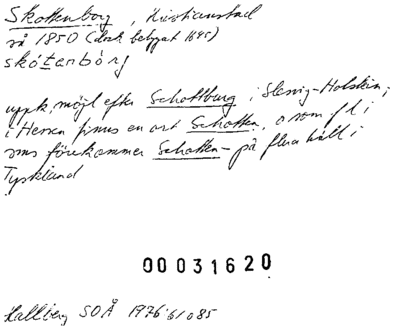 Skottenborg, Kristianstad
så 1850 (dock belagt 1645)
skótənbórj
uppk. möjl efter Schottburg i Slesvig-Holstein;
i Hessen finns en ort Schotten, o som fl i
sms förekommer Schotten- på flera håll i
Tyskland
00031620
Hallberg SOÅ 1976 s